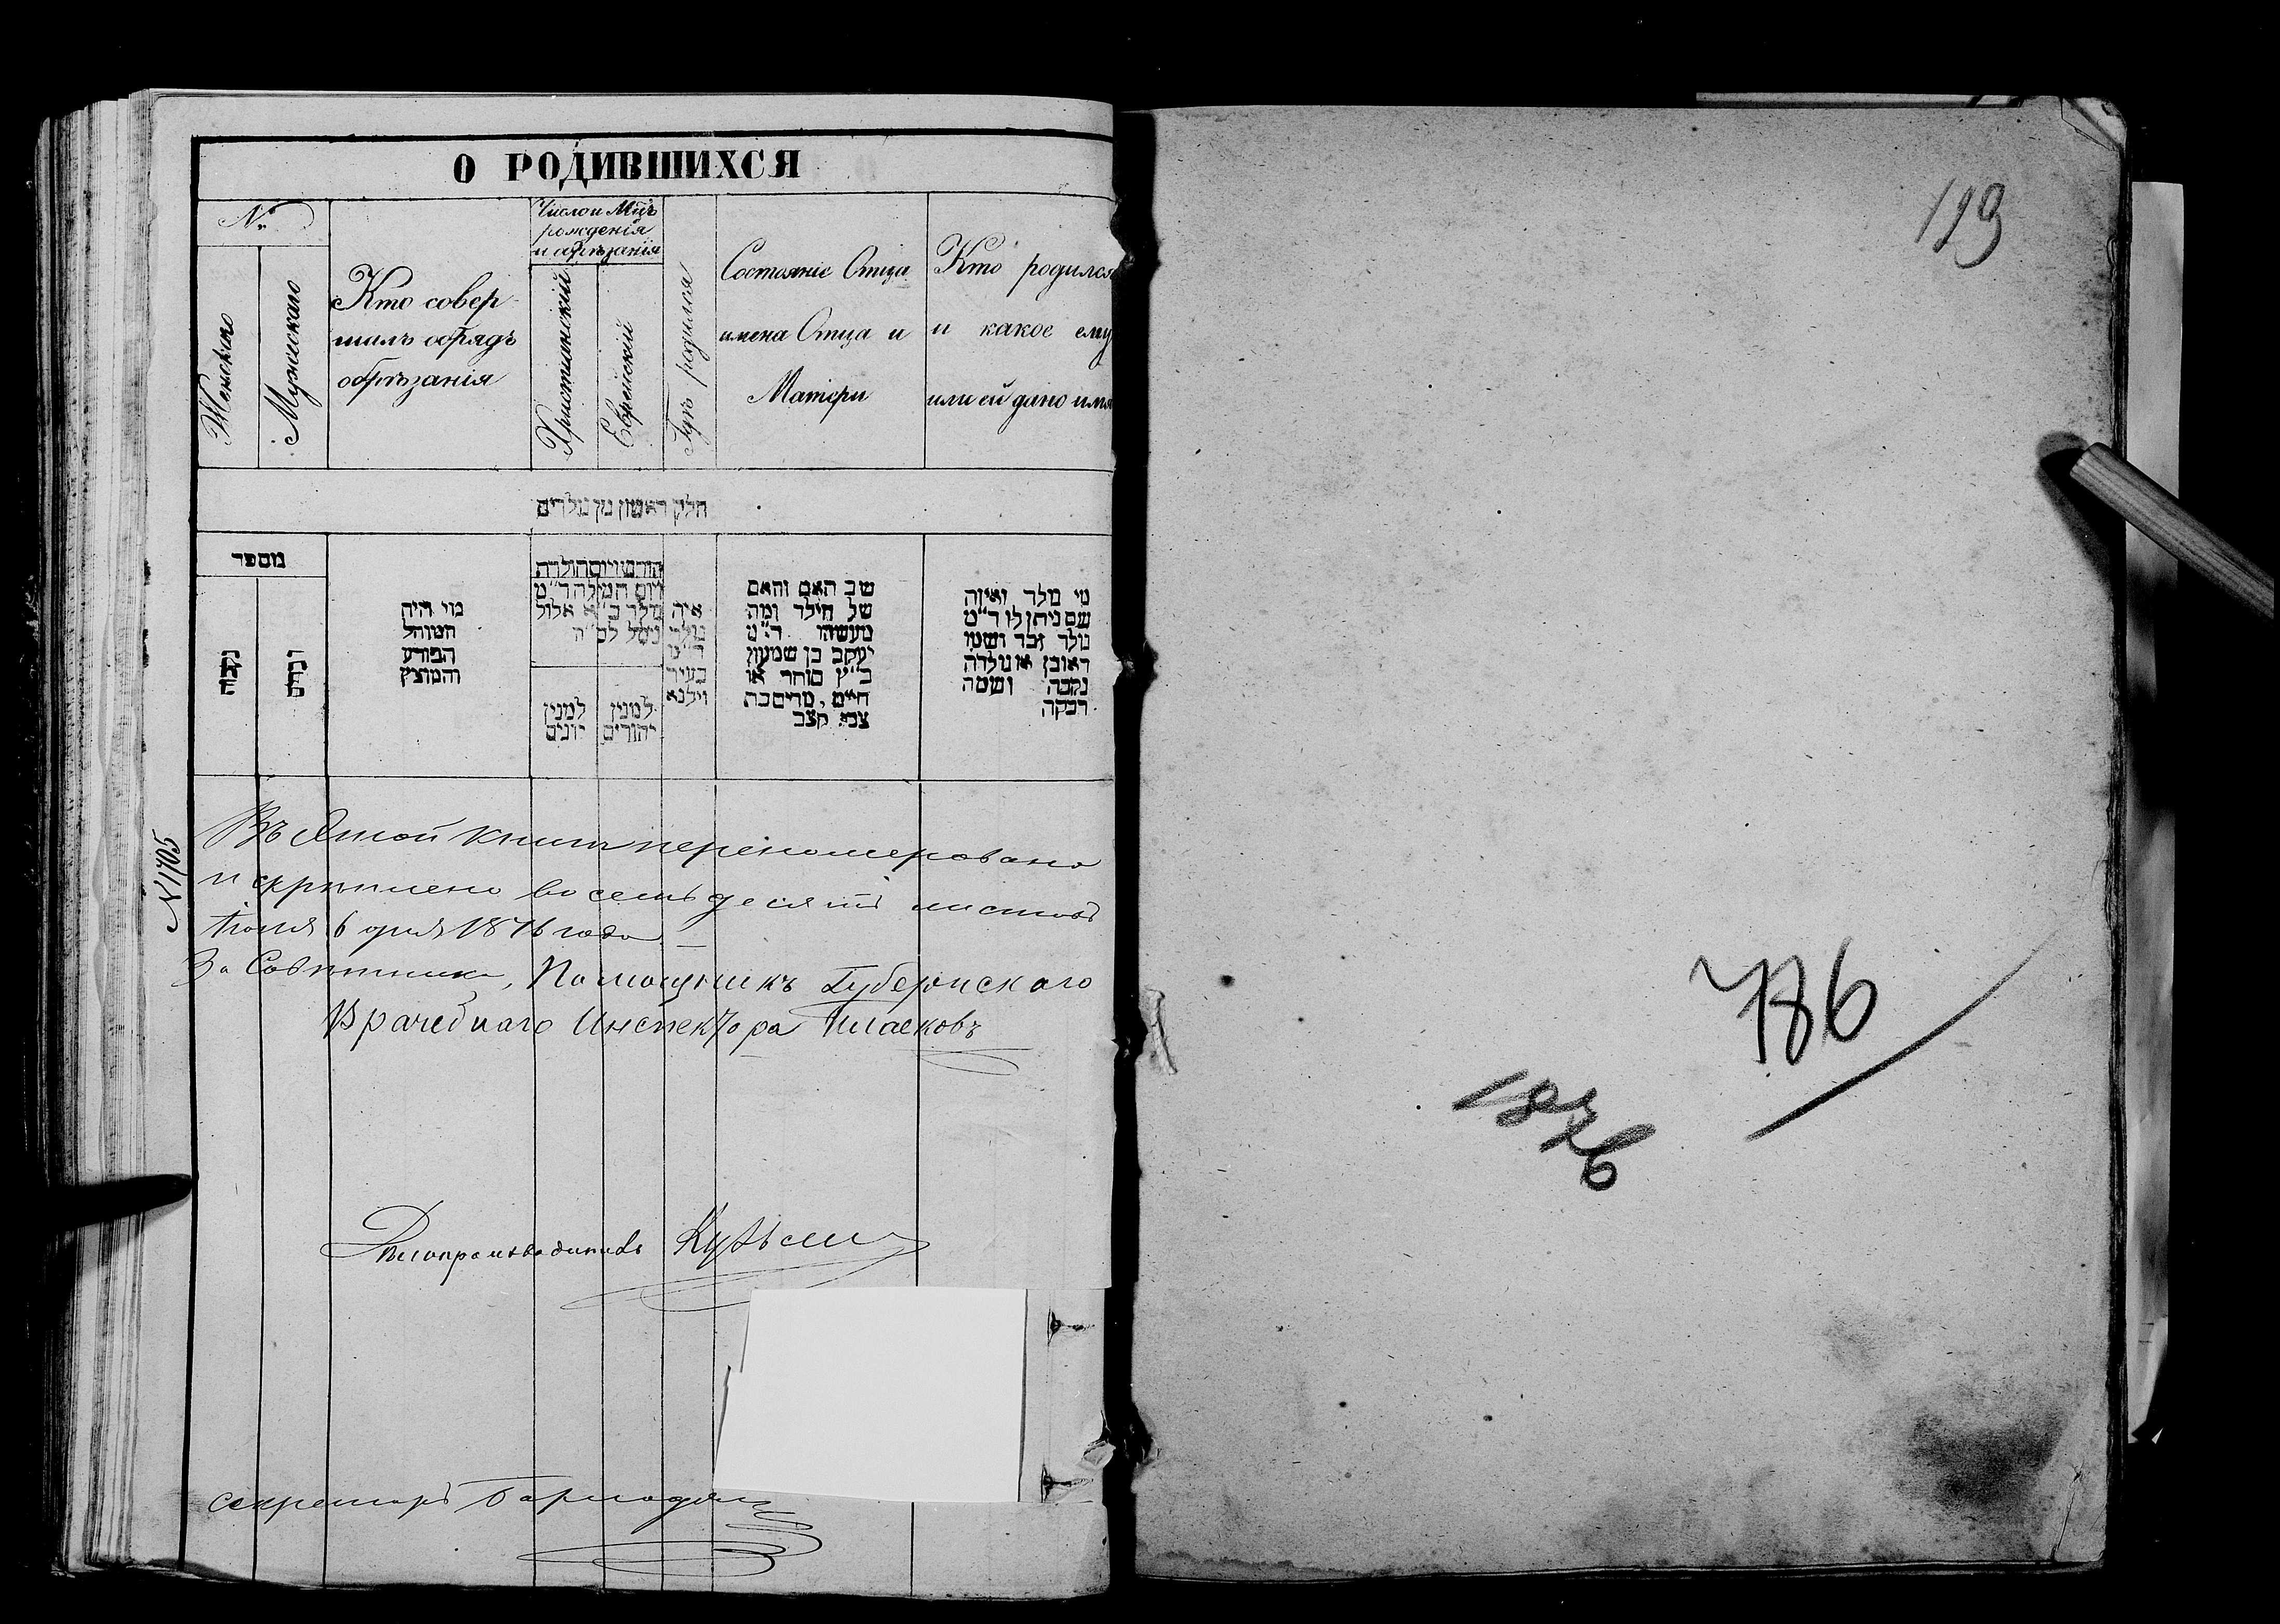 О РОДИВШИХСЯ
№
Женскаго
Мужескаго
Кто совер-
шилъ обрядъ
обрѣзанія
Число и Мцъ
рожденія
и обрѣзанія
Христианскій
Еврейскій
Гдѣ родился
Состояніе Отца
имена Отца и
Матери
Кто родился
и какое ему
или ей дано имя
חלק ראשון מן נולדים
מספר
נקבה
זכרים
מי היה
המוהל
הפורע
והמוצץ
חודש ויום הולדת
ויום המילה ד"מ
נולד ב"א אלול
ניסל לס"ה
למנין
יונים
למנין
יהודים
איה
נולד
ד"מ
בעיר
וילנא
שב האם והאם
של הילד ומה
מעשהו ד"מ
יעקב בן שמעון
כ"ץ סוחר או
חייט, מרים בת
צבי קצב
מי נולד ואיזה
שם ניתן לו ד"מ
נולד זכר ושמו
ראובן או נולדה
נקבה ושמה
רבקה
№ 1705
Въ этой книгѣ перенумеровано
и скрѣплено восемьдесятъ листовъ
Іюля 6 дня 1876 года.
За Совѣтника, Помощникъ Губернскаго
Врачебнаго Инспектора
Дѣлопроизводитель
секретарь
119
786
1876